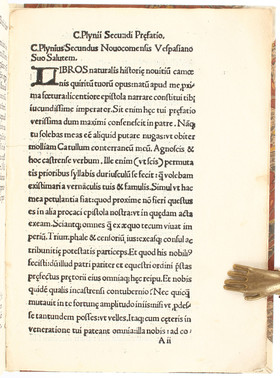 C. Plynii Secūdi Prefatio.
C. Plynius Secundus Nouocomensis Vespasiano
Suo Salutem.
LIBROS naturalis historię nouitiū camœ
nis quiritū tuorū opus: natū apud me ꝓxi
ma fœtura: licentiore epistola narrare constitui tibi
iucundissime imperator. Sit enim hęc tui pręfatio
verissima dum maximi consenescit in patre. Nāq;
tu solebas meas eē aliquid putare nugas: vt obiter
molliam Catullum conterraneū meū. Agnoscis &
hoc castrense verbum. Ille enim (vt scis) permuta
tis prioribus syllabis duriusculū se fecit: q̄ volebam
existimari a vernaculis tuis & famulis. Simul vt hac
mea petulantia fiat: quod proxime nō fieri questus
es in alia procaci epistola nostra: vt in quędam acta
exeam. Sciantq; omnes q̄ ex ęquo tecum viuat im
periū. Triumphalę & censoriū
tribunitię potestatis particeps. Et quod his nobiliꝰ
fecisti: dū illud patri pariter et equestri ordini pręstas
pręfectus pretorii eius omniaq; hęc reipu. Et nobis
quidē qualis in castrensi contubernio? Nec quicq̄
mutauit in te fortunę amplitudo
se tantundem posses: vt velles. Itaq; cum cęteris in
veneratione tui pateant omnia: illa nobis: ad co-
A ii